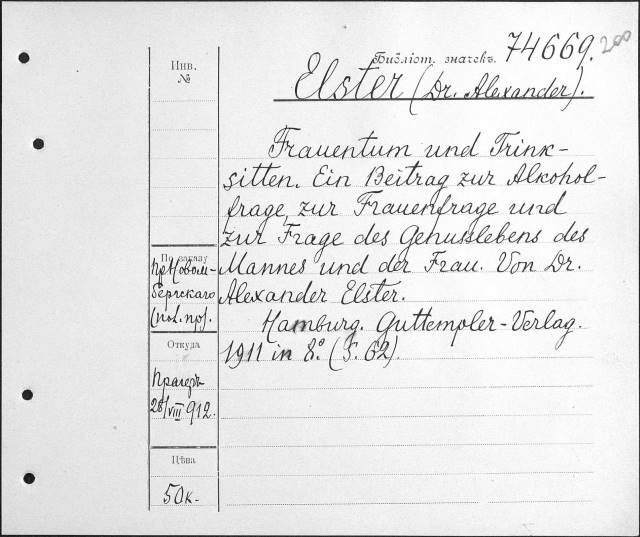 Библіот. значекъ. 74669. 200
Инв.
№
Elster (Dr. Alexander).
Frauentum und Trink-
sitten. Ein Beitrag zur Alkohol-
frage, zur Frauenfrage und
zur Frage des Genusslebens des
Mannes und der Frau. Von Dr.
Alexander Elster.
Hamburg. Guttempler-Verlag.
1911 in 8.° (S. 62).
По заказу
пр. Новом-
бергскаго
(пол. пр).
Откуда
Прагеръ
28/VIII 912.
Цѣна
50к-